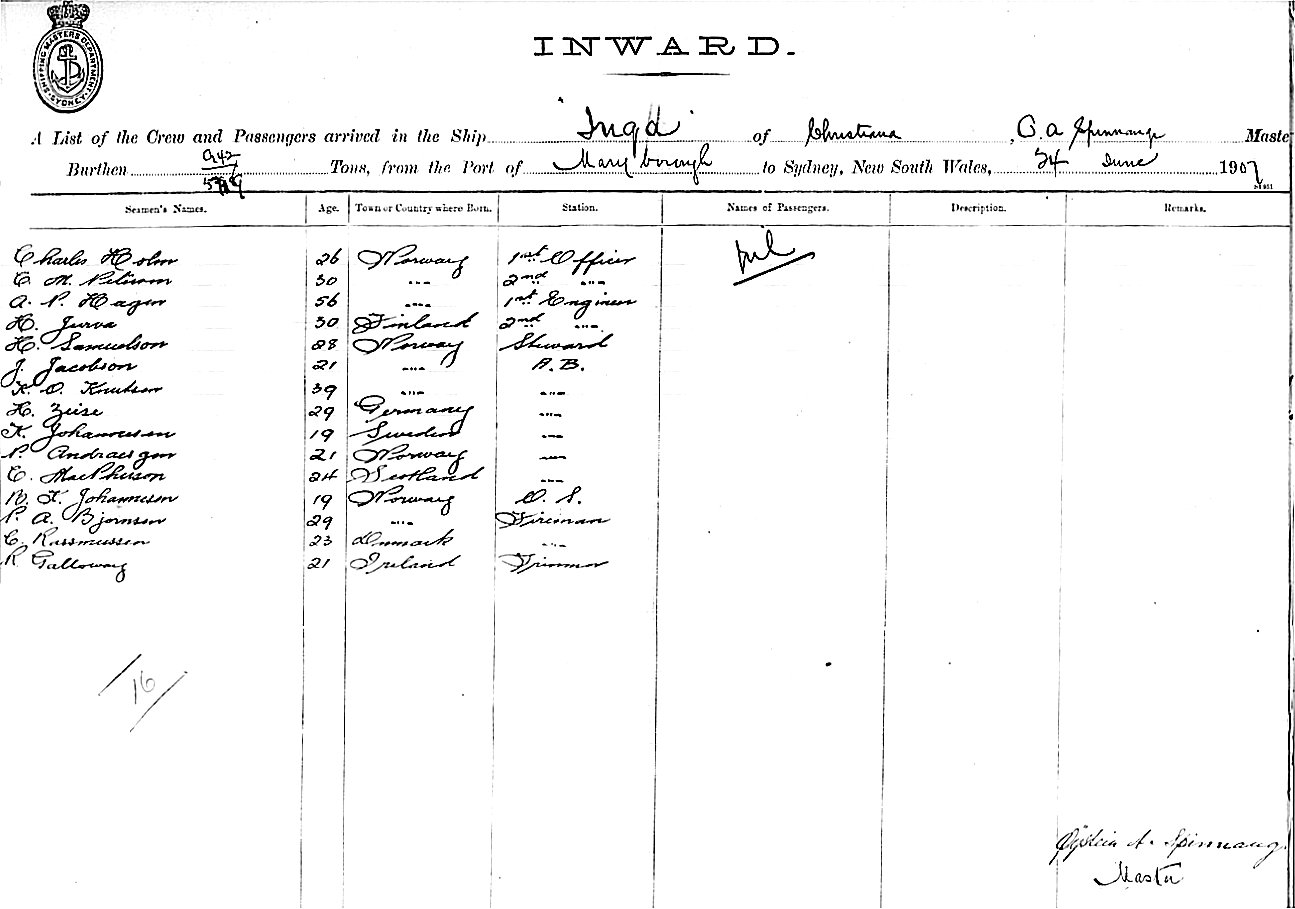 SHIPPING MASTERS DEPARTMENT SYDNEY
INWARD.
A List of the Crew and Passengers arrived in the Ship "Ingd" of Christiana, O. A Spinnangr Maste
Burthen 942 Tons, from the Port of Maryborough to Sydney, New South Wales, 24 June 1907
Seamen's Names. Age. Town or Country where Born. Station. Names of Passengers. Description. Remarks.
Charles Holm 26 Norway 1st Officer nil
C. M. Peterson 30 " 2nd "
A. P. Hagen 56 " 1st Engineer
H. Jurva 30 Finland 2nd "
H. Samuelson 28 Norway Steward
J. Jacobson 21 " A.B.
K. O. Knutsen 39 " "
H. Zeise 29 Germany "
K. Johannesen 19 Sweden "
P. Andraesson 21 Norway "
C. MacPherson 24 Scotland "
K. Johannesen 19 Norway O. S.
P. A. Bjornsen 29 " Fireman
C. Rassmussen 23 Denmark "
R Galloway 21 Ireland Trimmer
16
Øystein A. Spinnang
Master